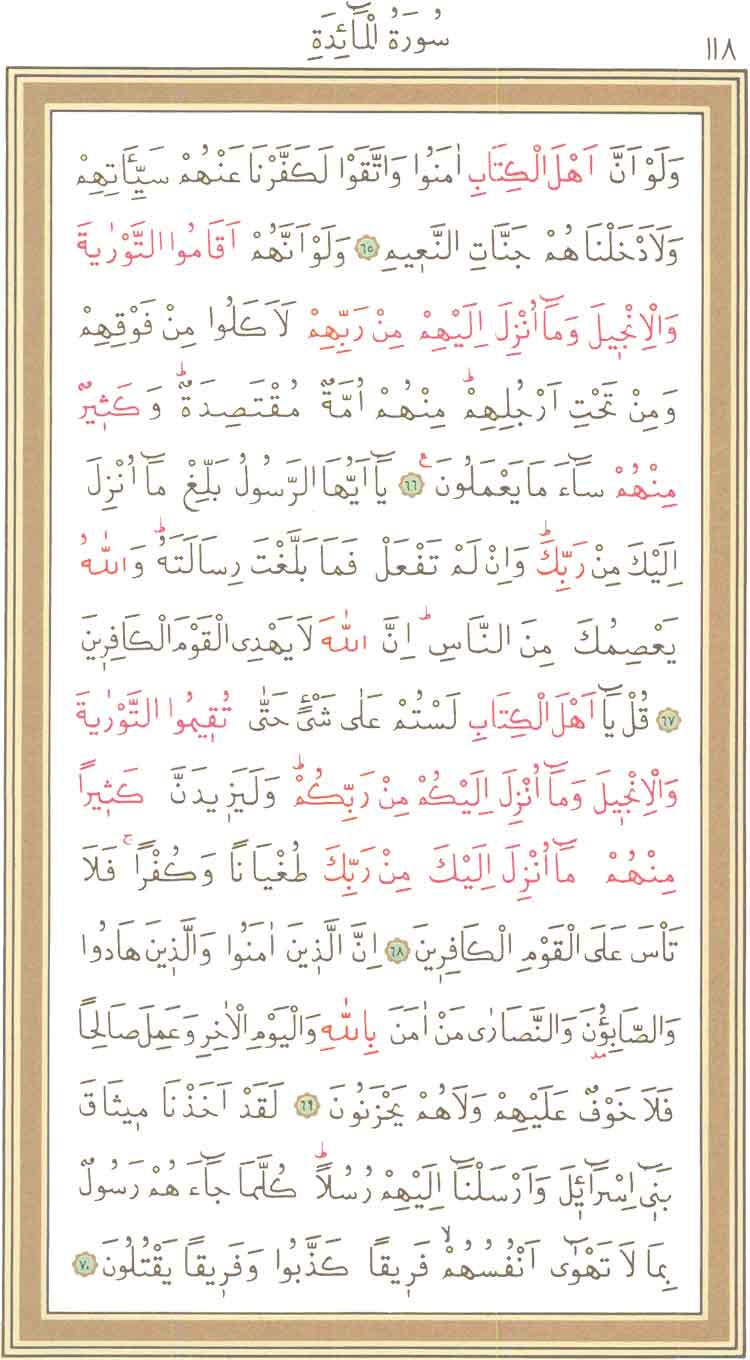 سُورَةُ الْمَٓائِدَةِ
١١٨
وَلَوْ اَنَّ اَهْلَ الْكِتَابِ اٰمَنُوا وَاتَّقَوْا لَكَفَّرْنَا عَنْهُمْ سَيِّـَٔاتِهِمْ
وَلَاَدْخَلْنَاهُمْ جَنَّاتِ النَّع۪يمِ ٦٥ وَلَوْ اَنَّهُمْ اَقَامُوا التَّوْرٰيةَ
وَالْاِنْج۪يلَ وَمَٓا اُنْزِلَ اِلَيْهِمْ مِنْ رَبِّهِمْ لَاَكَلُوا مِنْ فَوْقِهِمْ
وَمِنْ تَحْتِ اَرْجُلِهِمْۜ مِنْهُمْ اُمَّةٌ مُقْتَصِدَةٌۜ وَكَث۪يرٌ
مِنْهُمْ سَٓاءَ مَا يَعْمَلُونَ۟ ٦٦ يَٓا اَيُّهَا الرَّسُولُ بَلِّغْ مَٓا اُنْزِلَ
اِلَيْكَ مِنْ رَبِّكَۜ وَاِنْ لَمْ تَفْعَلْ فَمَا بَلَّغْتَ رِسَالَتَهُۜ وَاللّٰهُ
يَعْصِمُكَ مِنَ النَّاسِۜ اِنَّ اللّٰهَ لَا يَهْدِي الْقَوْمَ الْكَافِر۪ينَ
٦٧ قُلْ يَٓا اَهْلَ الْكِتَابِ لَسْتُمْ عَلٰى شَيْءٍ حَتّٰى تُق۪يمُوا التَّوْرٰيةَ
وَالْاِنْج۪يلَ وَمَٓا اُنْزِلَ اِلَيْكُمْ مِنْ رَبِّكُمْۜ وَلَيَز۪يدَنَّ كَث۪يراً
مِنْهُمْ مَٓا اُنْزِلَ اِلَيْكَ مِنْ رَبِّكَ طُغْيَاناً وَكُفْراًۚ فَلَا
تَأْسَ عَلَى الْقَوْمِ الْكَافِر۪ينَ ٦٨ اِنَّ الَّذ۪ينَ اٰمَنُوا وَالَّذ۪ينَ هَادُوا
وَالصَّابِؤُ۫نَ وَالنَّصَارٰى مَنْ اٰمَنَ بِاللّٰهِ وَالْيَوْمِ الْاٰخِرِ وَعَمِلَ صَالِحاً
فَلَا خَوْفٌ عَلَيْهِمْ وَلَا هُمْ يَحْزَنُونَ ٦٩ لَقَدْ اَخَذْنَا م۪يثَاقَ
بَن۪ٓي اِسْرَٓائ۪لَ وَاَرْسَلْنَٓا اِلَيْهِمْ رُسُلاًۜ كُلَّمَا جَٓاءَهُمْ رَسُولٌ
بِمَا لَا تَهْوٰٓى اَنْفُسُهُمْۙ فَر۪يقاً كَذَّبُوا وَفَر۪يقاً يَقْتُلُونَ ٧٠